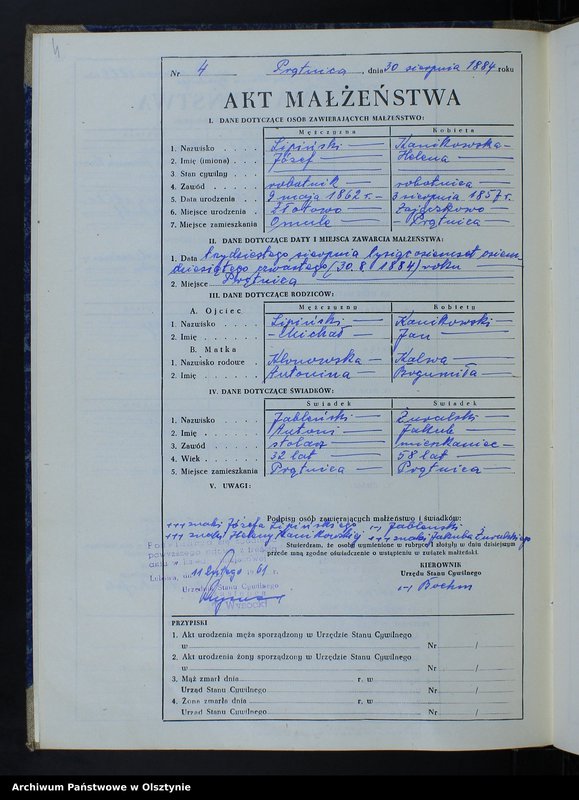 4
Nr 4 Prątnica, dnia 30 sierpnia 1884 roku
AKT MAŁŻEŃSTWA
I. DANE DOTYCZĄCE OSÓB ZAWIERAJĄCYCH MAŁŻEŃSTWO:
Mężczyzna Kobieta
1. Nazwisko Lipiński Kanikowska
2. Imię (imiona) Józef Helena
3. Stan cywilny
4. Zawód robotnik robotnica
5. Data urodzenia 9 maja 1862 r. 3 sierpnia 1857 r.
6. Miejsce urodzenia Złotowo Zajączkowo
7. Miejsce zamieszkania Omule Prątnica
II. DANE DOTYCZĄCE DATY I MIEJSCA ZAWARCIA MAŁŻEŃSTWA:
1. Data trzydziestego sierpnia tysiąc osiemset osiem
dziesiątego czwartego (30.8.1884) roku
2. Miejsce Prątnica
III. DANE DOTYCZĄCE RODZICÓW:
Mężczyzny Kobiety
A. Ojciec
1. Nazwisko Lipiński Kanikowski
2. Imię Michał Jan
B. Matka
1. Nazwisko rodowe Klonowska Kalwa
2. Imię Antonina Bogumiła
IV. DANE DOTYCZĄCE ŚWIADKÓW:
Świadek Świadek
1. Nazwisko Jabłoński Żuralski
2. Imię Antoni Jakub
3. Zawód stolarz mieszkaniec
4. Wiek 32 lat 58 lat
5. Miejsce zamieszkania Prątnica Prątnica
V. UWAGI:
Podpisy osób zawierających małżeństwo i świadków:
+++ znaki Józefa Lipińskiego (-) Jabłoński
+++ znaki Heleny Kanikowskiej +++ znaki Jakuba Żuralskiego
Stwierdzam, że osoby wymienione w rubryce I złożyły w dniu dzisiejszym
przede mną zgodne oświadczenie o wstąpieniu w związek małżeński.
11 lutego 61 r.
KIEROWNIK
Urzędu Stanu Cywilnego
(-) Boehm
Urzędnik Stanu Cywilnego
Wysocki
PRZYPISKI
1. Akt urodzenia męża sporządzony w Urzędzie Stanu Cywilnego
w Nr /
2. Akt urodzenia żony sporządzony w Urzędzie Stanu Cywilnego
w Nr /
3. Mąż zmarł dnia r. w
Urząd Stanu Cywilnego Nr /
4. Żona zmarła dnia r. w
Urząd Stanu Cywilnego Nr /
Archiwum Państwowe w Olsztynie